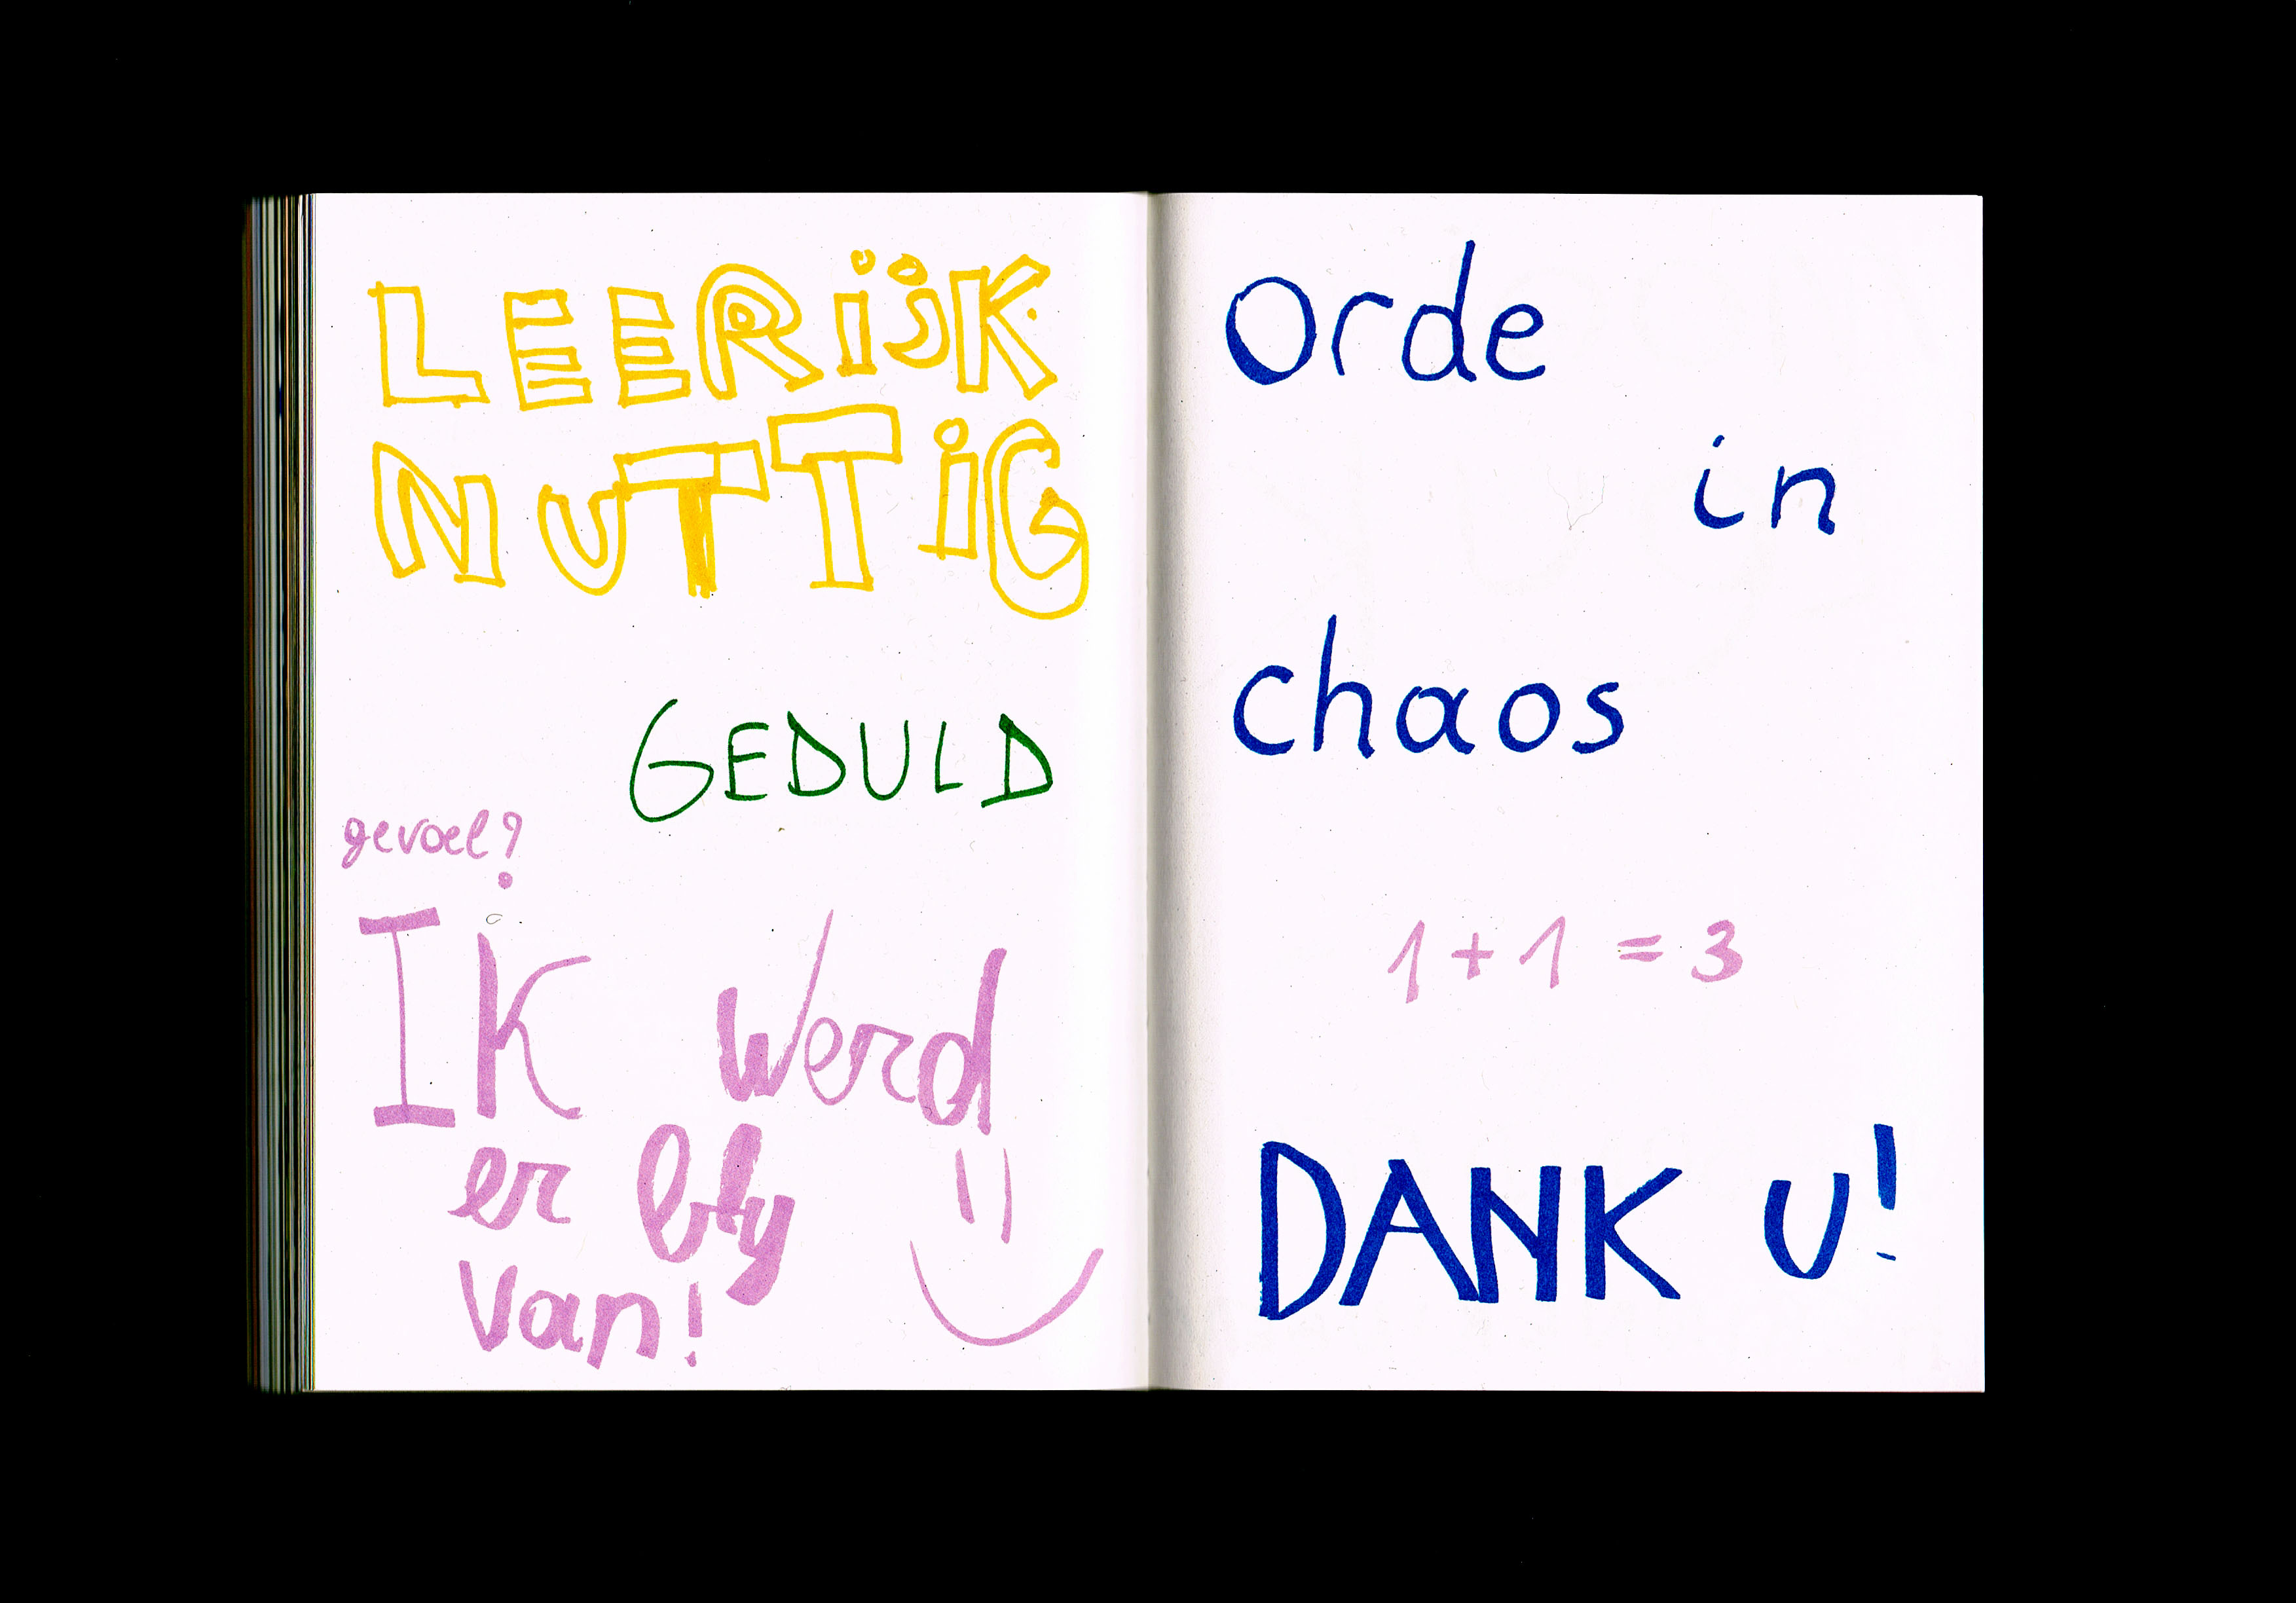 LEERijK
NUTTiG
GEDULD
gevoel?
Ik werd
er blij
van!
Orde
in
chaos
1 + 1 = 3
DANK U!